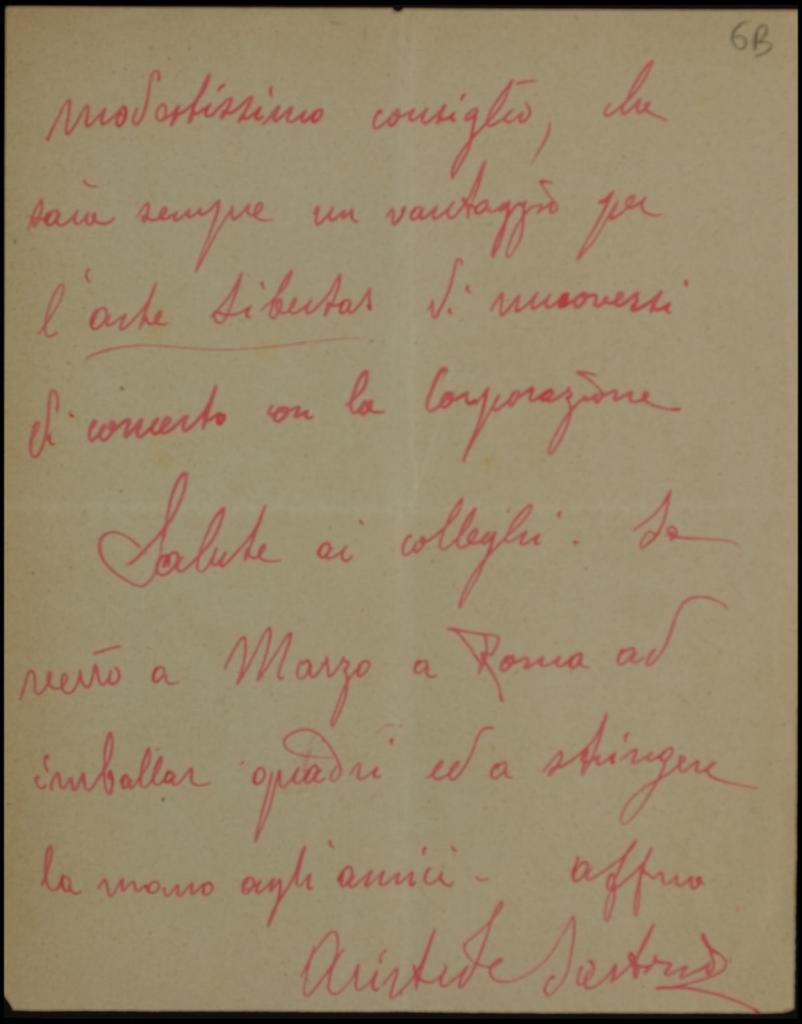 6B
modestissimo consiglio, che
saria sempre un vantaggio per
l'arte Libertas di muoversi
di concerto con la Corporazione
Salute ai colleghi. Io
verrò a Marzo a Roma ad
imballar quadri ed a stringere
la mano agli amici - affmo
Aristide Sartorio